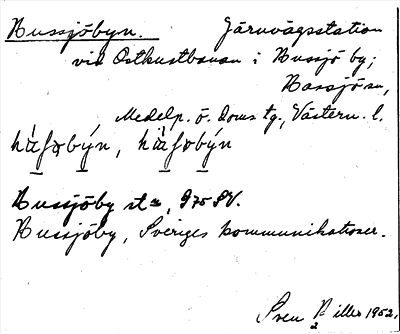 Hussjöbyn. Järnvägsstation
vid Ostkustbanan i Hussjö by;
Hässjö sn,
Medelp. ö. doms tg., Västern. l.
Hussjöby stn, 975 SV.
Hussjöby, Sveriges kommunikationer.
Sven 1952.